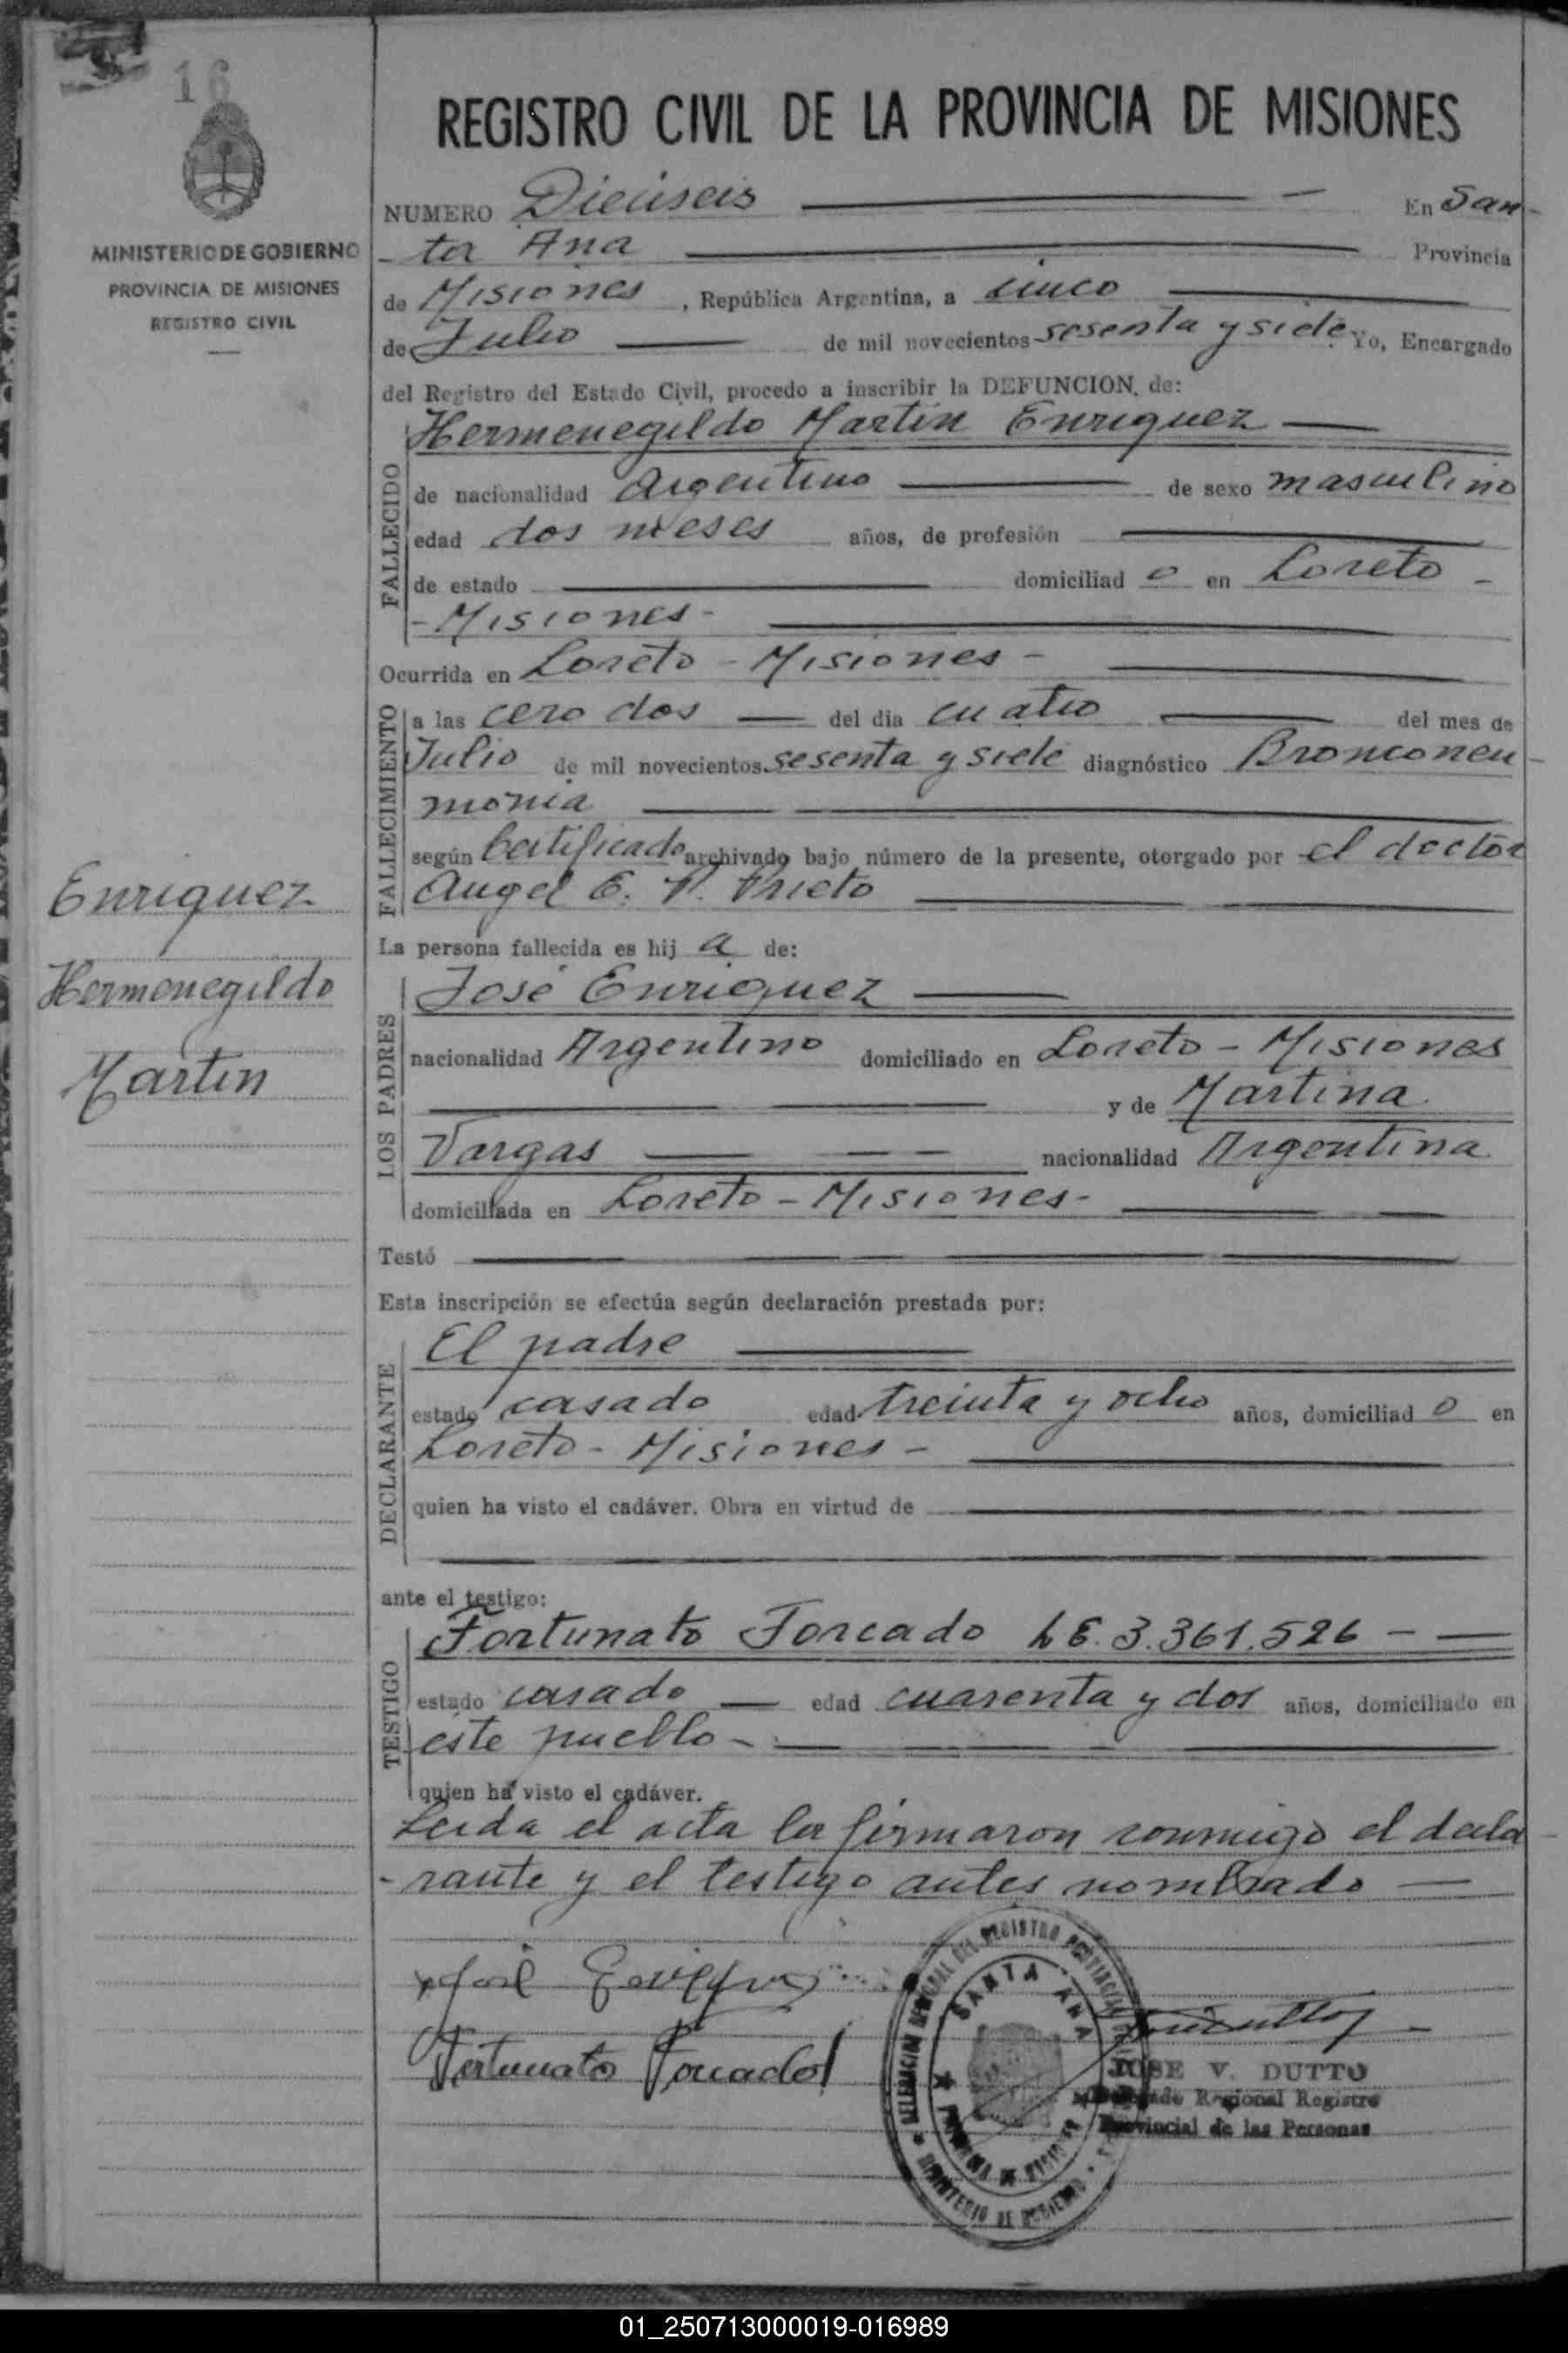 16
MINISTERIO DE GOBIERNO
PROVINCIA DE MISIONES
REGISTRO CIVIL
Enriquez
Hermenegildo
Martin
REGISTRO CIVIL DE LA PROVINCIA DE MISIONES
NUMERO Dieciseis En San-
-ta Ana Provincia
de Misiones, República Argentina, a cinco
de Julio de mil novecientos sesenta y siete. Yo, Encargado
del Registro del Estado Civil, procedo a inscribir la DEFUNCION, de:
Hermenegildo Martin Enriquez
FALLECIDO
de nacionalidad Argentino de sexo masculino
edad dos meses años, de profesión
de estado domiciliad o en Loreto -
- Misiones -
Ocurrida en Loreto - Misiones -
FALLECIMIENTO
a las cero dos del dia cuatro del mes de
Julio de mil novecientos sesenta y siete diagnóstico Bronconeu-
monia
según Certificado archivado bajo número de la presente, otorgado por el doctor
Angel E. P. Prieto
La persona fallecida es hij a de:
LOS PADRES
José Enriquez
nacionalidad Argentino domiciliado en Loreto - Misiones
y de Martina
Vargas nacionalidad Argentina
domiciliada en Loreto - Misiones -
Testó
Esta inscripción se efectúa según declaración prestada por:
DECLARANTE
El padre
estado casado edad treinta y ocho años, domiciliad o en
Loreto - Misiones -
quien ha visto el cadáver. Obra en virtud de
ante el testigo:
TESTIGO
Fortunato Forcado LE. 3.361.526 -
estado casado edad cuarenta y dos años, domiciliado en
este pueblo -
quien ha visto el cadáver.
Leida el acta la firmaron conmigo el decla-
-rante y el testigo antes nombrado
José Enriquez
Fortunato Forcado
SANTA ANA
PROVINCIA DE MISIONES
MINISTERIO DE GOBIERNO
JOSE V. DUTTO
Regional Registro
Provincial de las Personas
01_250713000019-016989